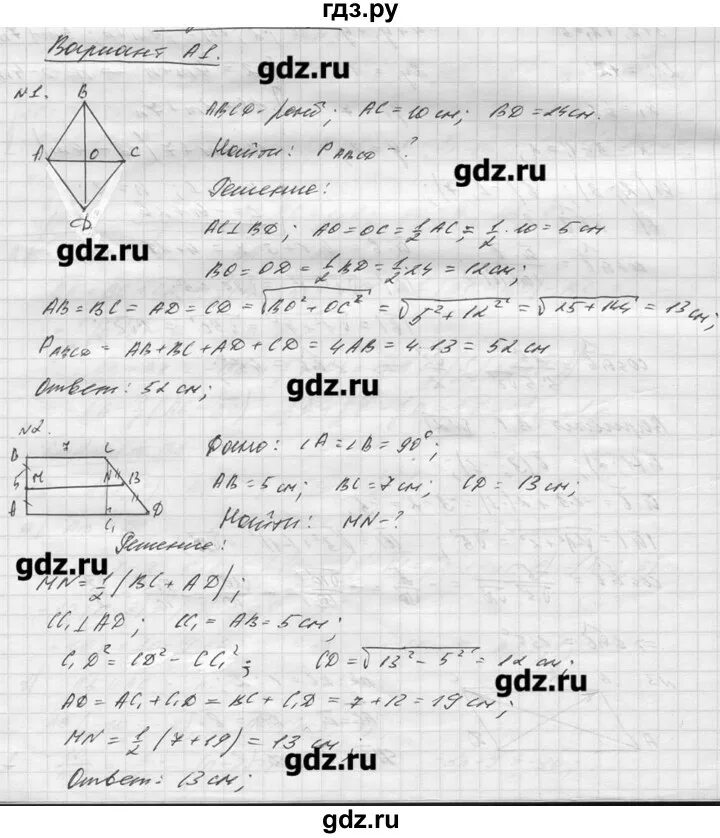 гдз.ру
Вариант А1.
gdz.ru
№1.
B
A O C
D
ABCD – ромб; AC = 10 см; BD = 24 см.
Найти: P_ABCD – ?
gdz.ru
Решение:
AC⊥BD; AO = OC = 1/2 AC = 1/2 · 10 = 5 см
gdz.ru
BO = OD = 1/2 BD = 1/2 24 = 12 см;
AB = BC = AD = CD = √(BO² + OC²) = √(5² + 12²) = √(25 + 144) = 13 см;
P_ABCD = AB + BC + AD + CD = 4AB = 4 · 13 = 52 см
Ответ: 52 см;
gdz.ru
№2.
B 7 C
5 M N 13
A C₁ D
Дано: ∠A = ∠B = 90°;
AB = 5 см; BC = 7 см; CD = 13 см;
gdz.ru
Найти: MN – ?
Решение:
gdz.ru
MN = 1/2 (BC + AD);
CC₁⊥AD; CC₁ = AB = 5 см;
C₁D² = CD² – CC₁²; CD = √(13² – 5²) = 12 см;
gdz.ru
AD = AC₁ + C₁D = BC + C₁D = 7 + 12 = 19 см;
MN = 1/2 (7 + 19) = 13 см;
gdz.ru
Ответ: 13 см;
gdz.ru